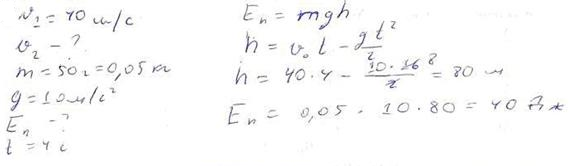 v₁ = 40 м/с
v₂ - ?
m = 50 г = 0,05 кг
g = 10 м/с²
Eп - ?
t = 4 с
Eп = mgh
h = v₀t - gt²/2
h = 40·4 - 10·16⁸/2 = 80 м
Eп = 0,05 · 10 · 80 = 40 Дж